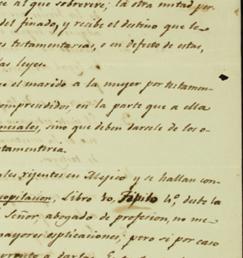 e al que sobrevive; la otra mitad per-
del finado, y recibe el destino que le
os testamentarias, o en defecto de estas,
las leyes.
e el marido a la muger por testamen-
comprendidos en la parte que a ella
nanciales, sino que deben darsele de los o-
tamentiria.
les vijentes en Mejico y se hallan con-
copilacion, Libro 10, Titulo 4º, dubo la
Señor, abogado de profesion, no me
mayores esplicaciones; pero si por caso